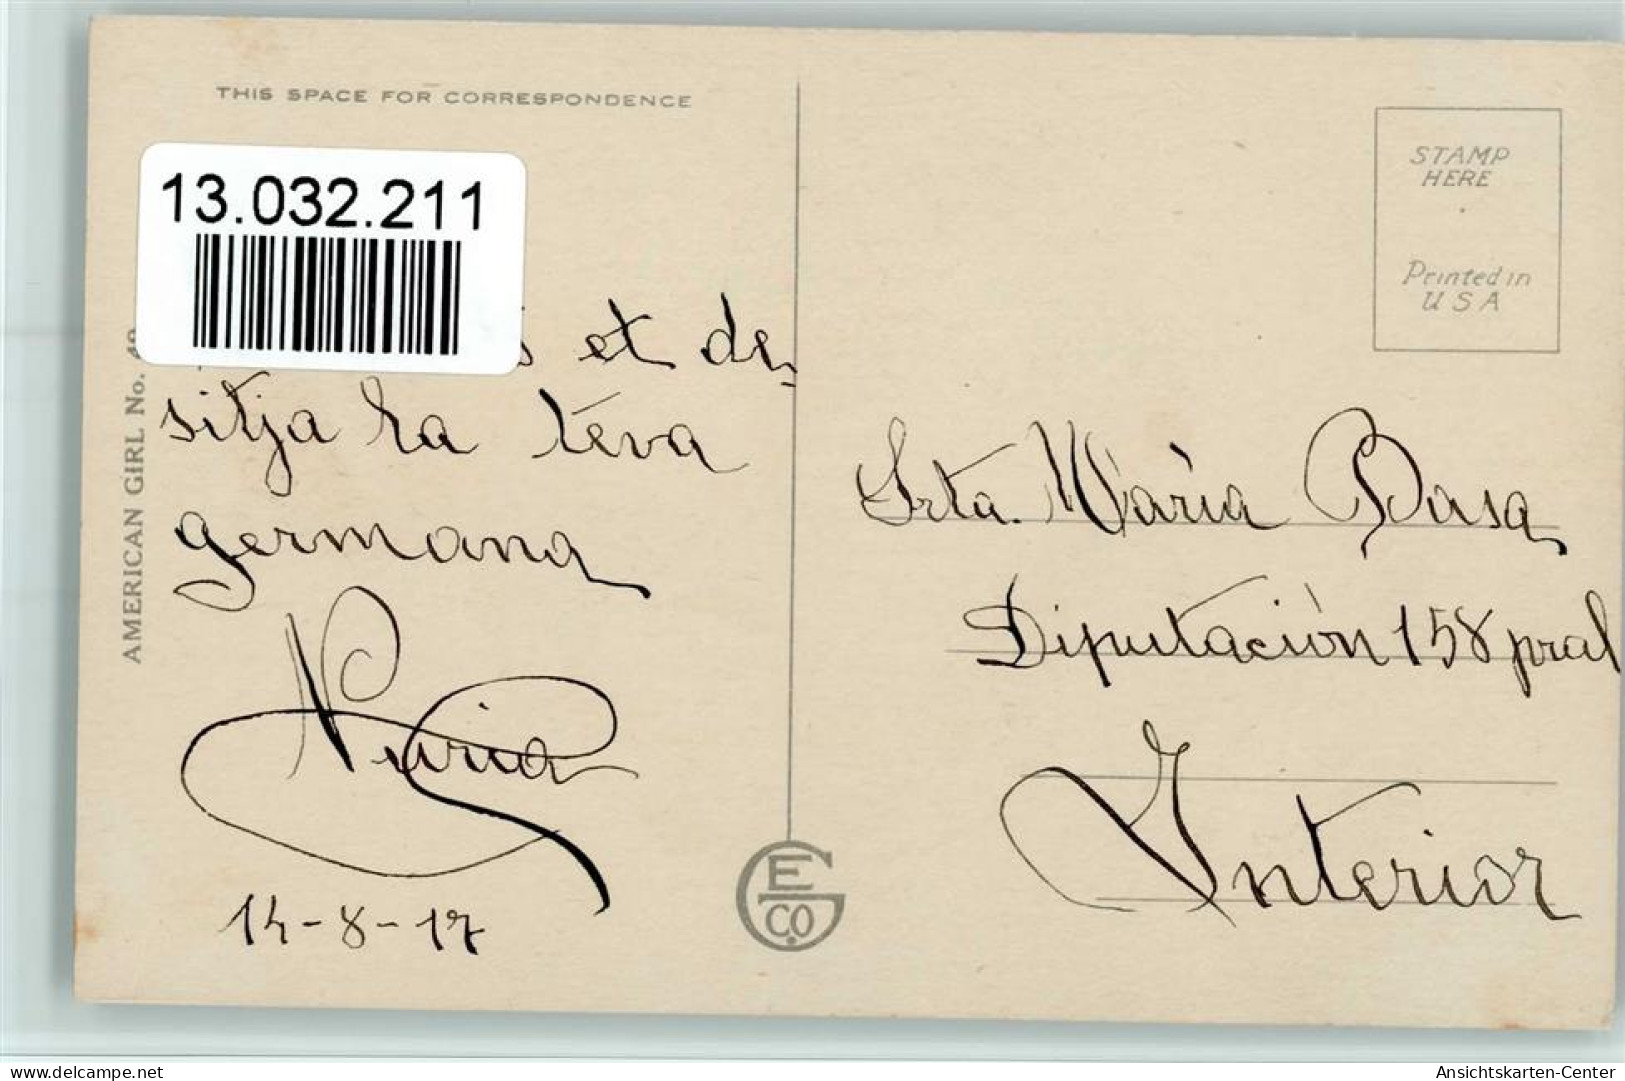 THIS SPACE FOR CORRESPONDENCE
13.032.211
AMERICAN GIRL No.
et de-
sitja la téva
germana
Nuria
14-8-17
E G Co.
STAMP
HERE
Printed in
USA
Srta. Maria Basa
Diputación 158 pral
Interior
www.delcampe.net
Ansichtskarten-Center